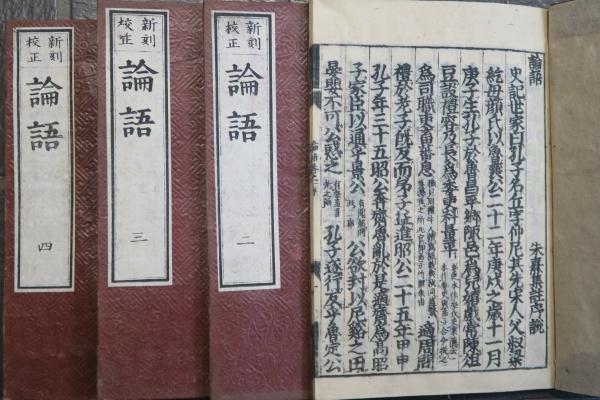 論語
朱熹集註序說
史記世家曰孔子名丘字仲尼其先宋人父叔梁
紇母顏氏以魯襄公二十二年庚戌之歲十一月
庚子生孔子於魯昌平鄉陬邑爲兒嬉戲常陳俎
豆設禮容及長爲委吏料量平
爲司職吏畜蕃息 適周問
禮於老子旣反而弟子益進昭公二十五年甲申
孔子年三十五昭公奔齊魯亂於是適齊爲高昭
子家臣以通乎景公 公欲封以尼谿之田
晏嬰不可公惑之 孔子遂行反乎魯定公
新刻
校正
論語
二
新刻
校正
論語
三
新刻
校正
論語
四